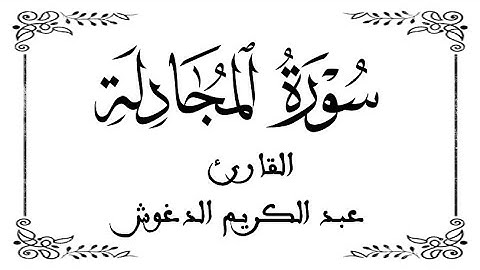 سُورَةُ المُجَادِلَة
القارئ
عبد الكريم الدغوش